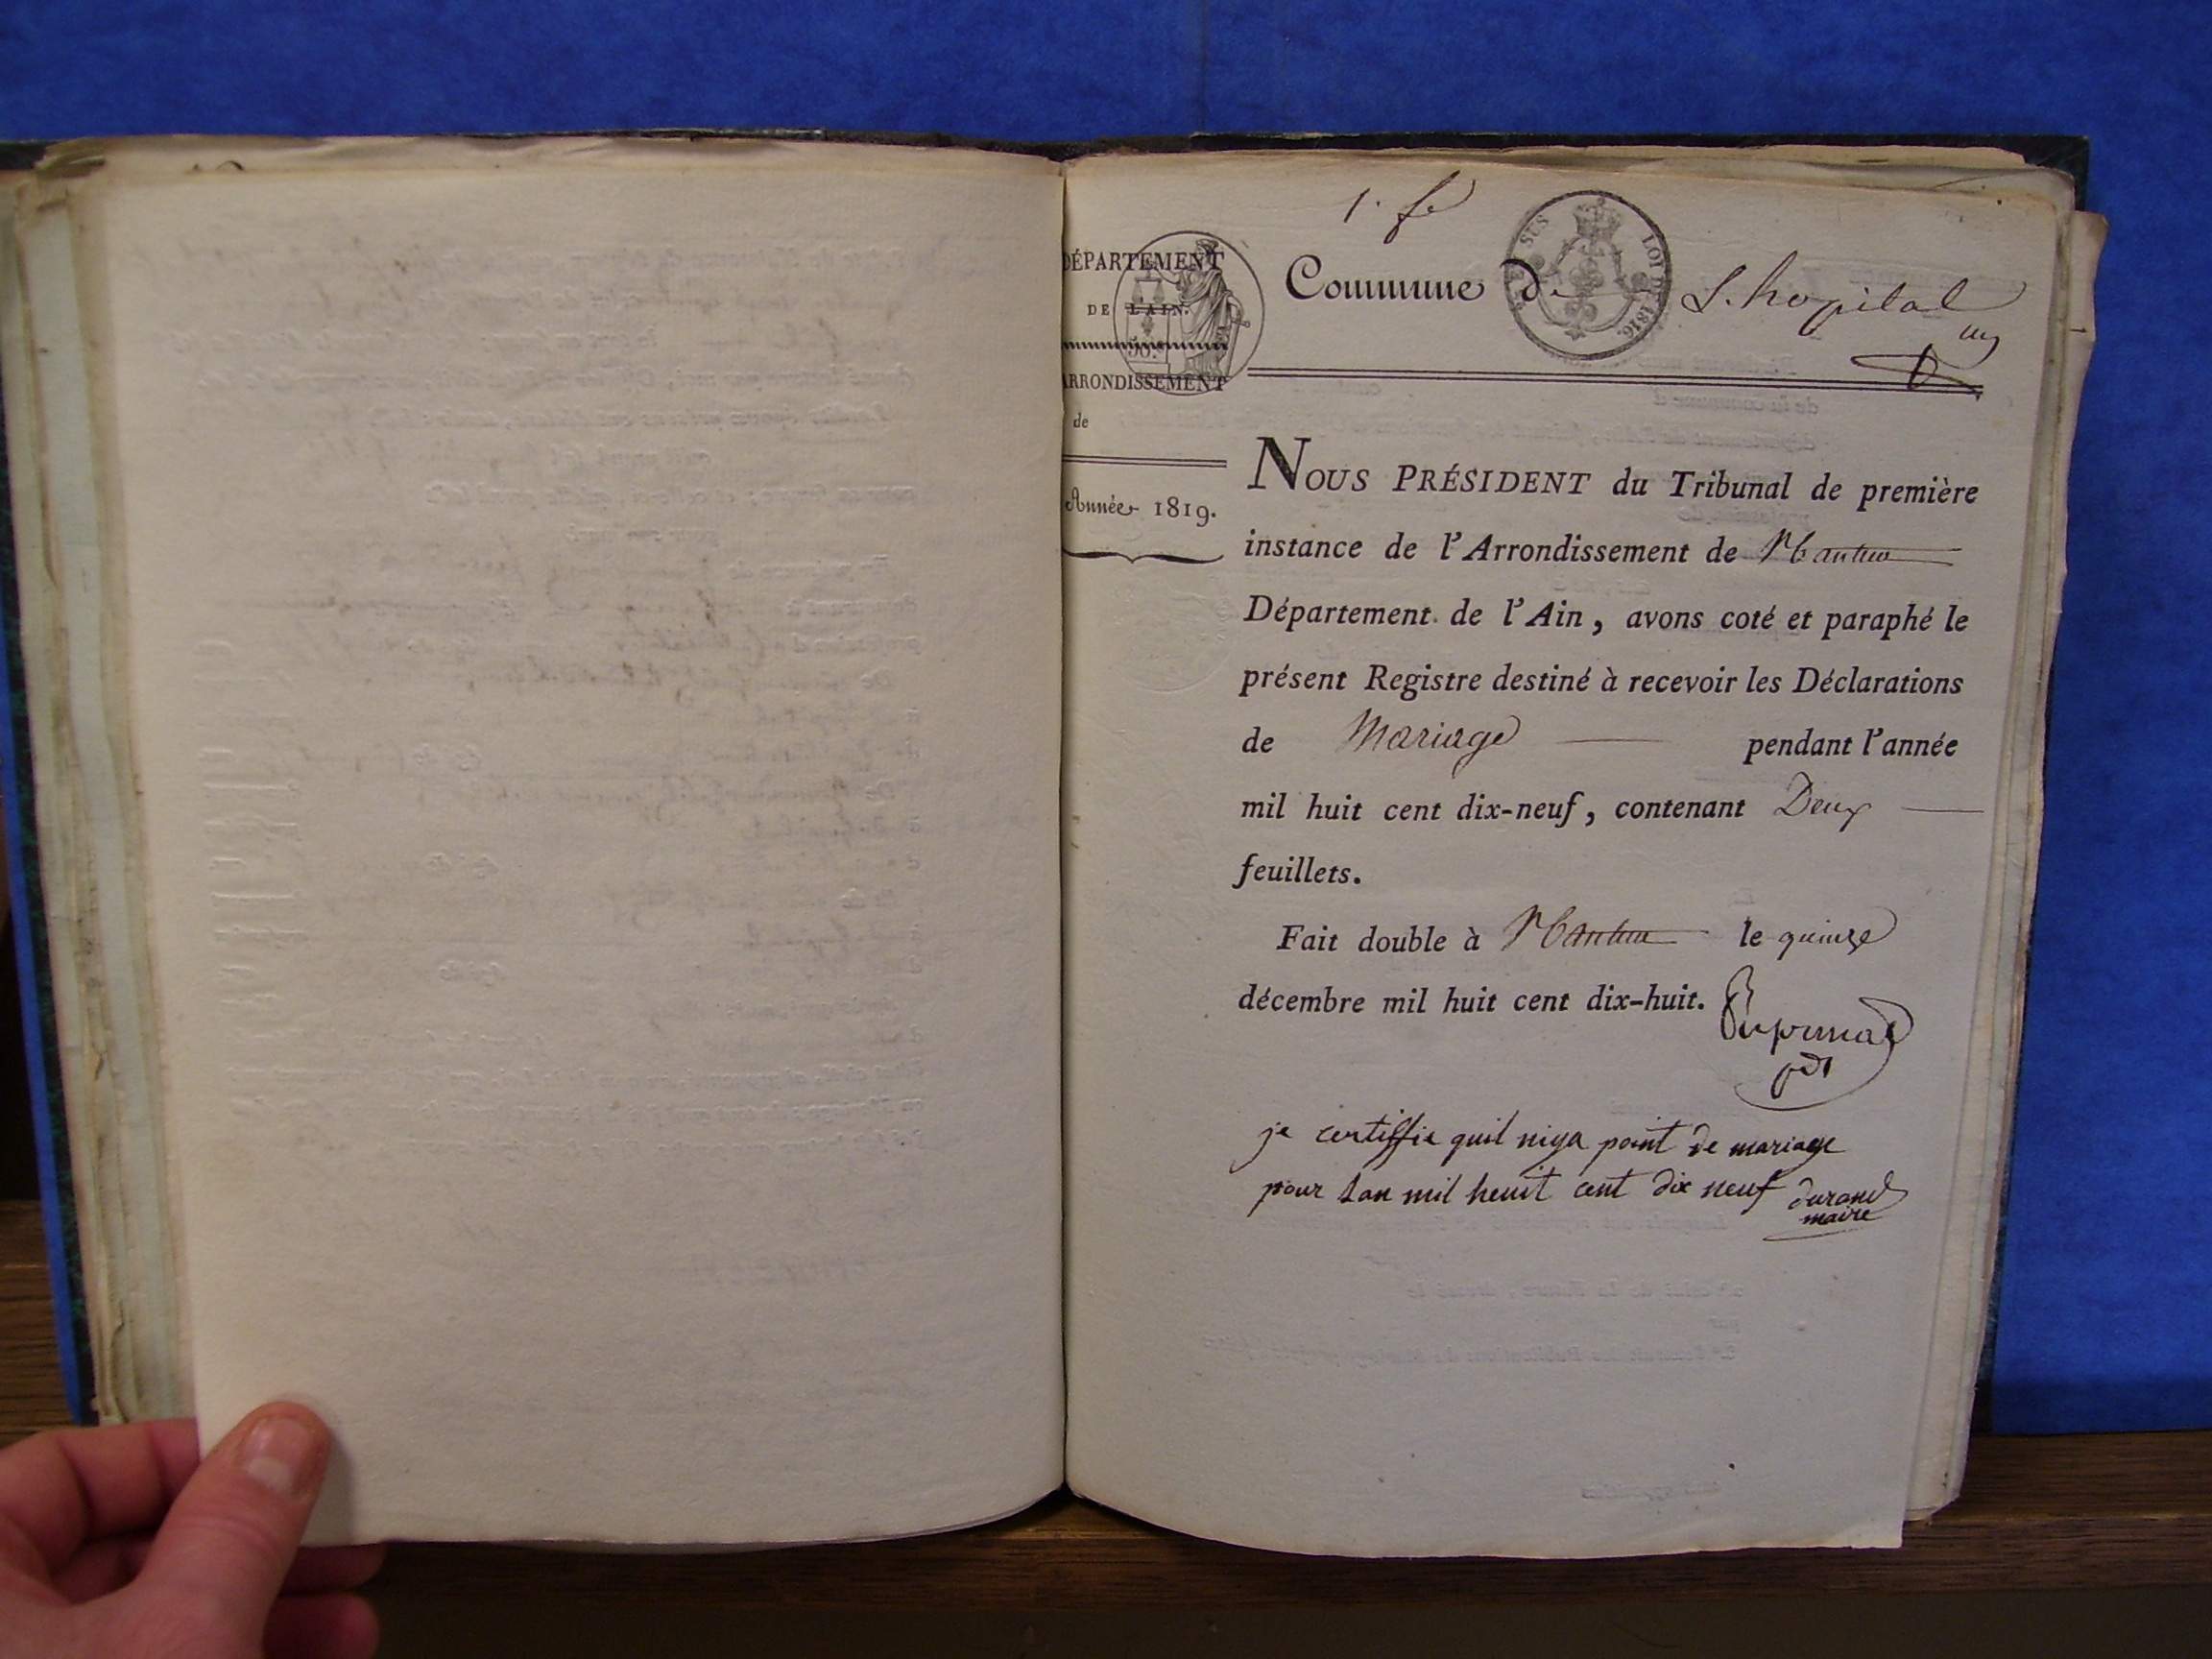 1. fe
DÉPARTEMENT
DE L'AIN.
ARRONDISSEMENT
de
Année 1819.
SUS
LOI DE 1816.
Commune de L. hopital
NOUS PRÉSIDENT du Tribunal de première
instance de l'Arrondissement de Nantua
Département de l'Ain, avons coté et paraphé le
présent Registre destiné à recevoir les Déclarations
de Mariage pendant l'année
mil huit cent dix-neuf, contenant Deux
feuillets.
Fait double à Nantua le quinze
décembre mil huit cent dix-huit.
pdt
je certiffie quil niya point de mariage
pour lan mil heuit cent dix neuf durand
maire